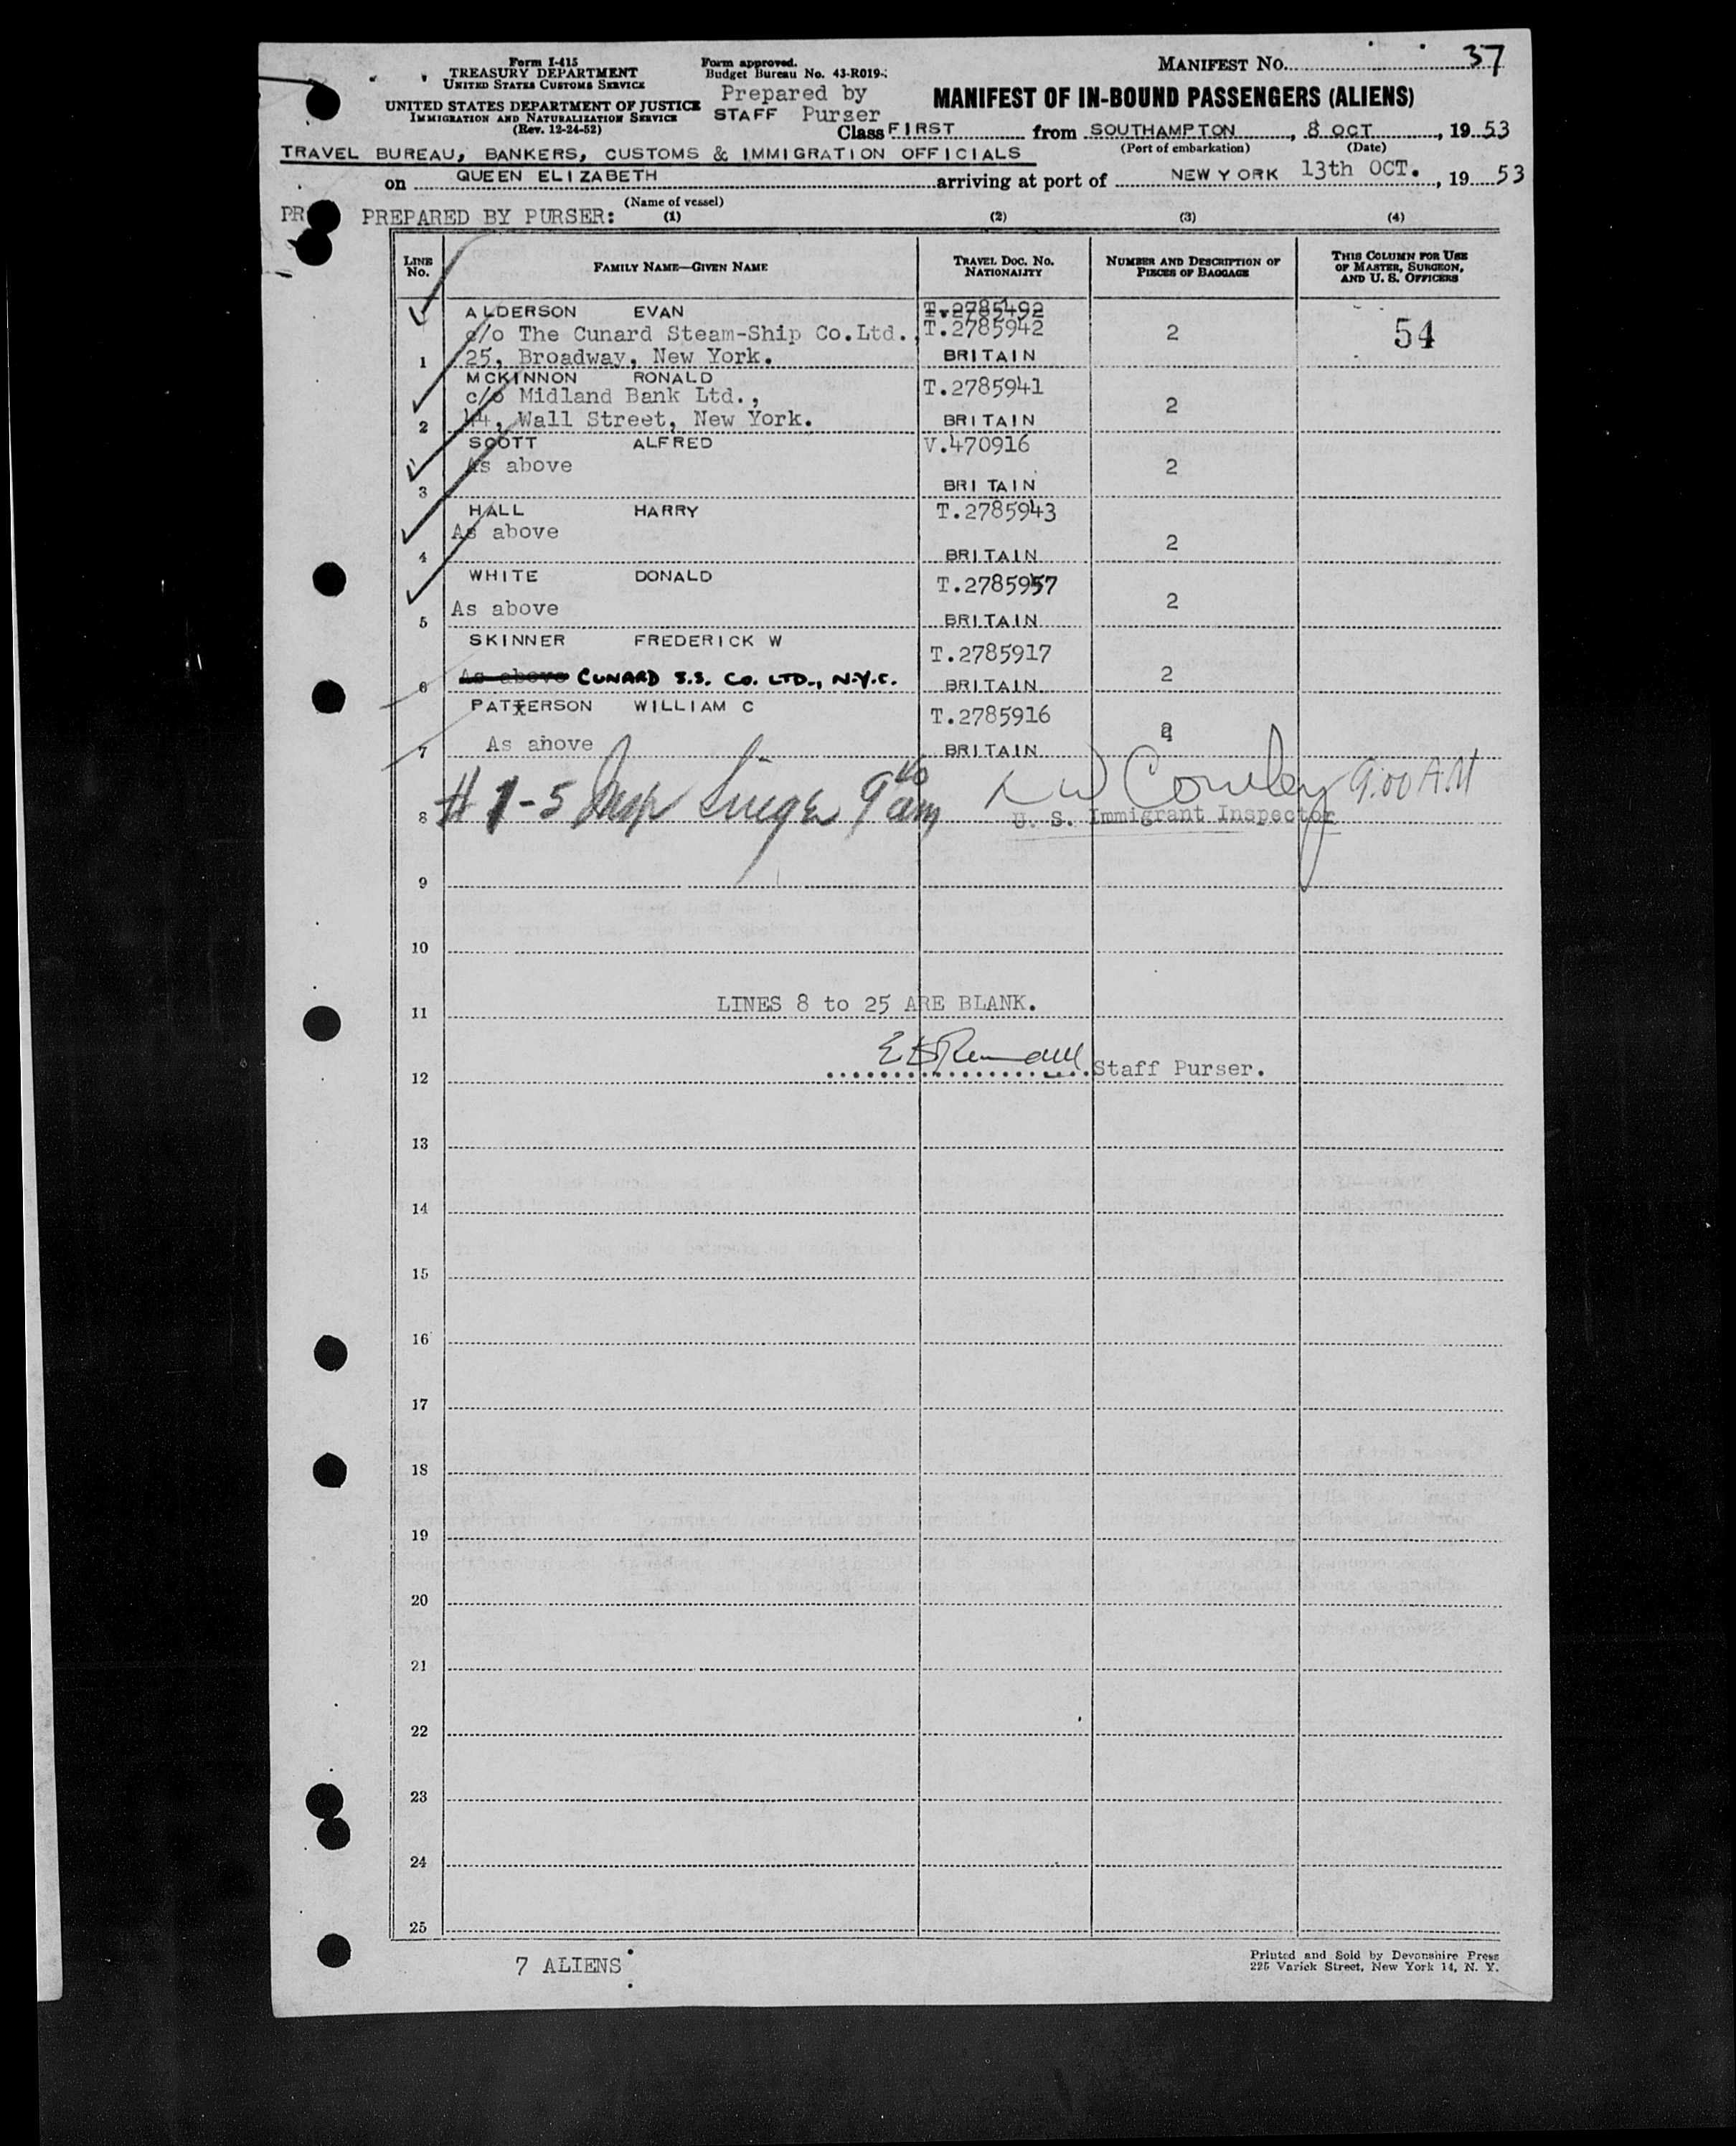 Form I-415
TREASURY DEPARTMENT
UNITED STATES CUSTOMS SERVICE
UNITED STATES DEPARTMENT OF JUSTICE
IMMIGRATION AND NATURALIZATION SERVICE
(Rev. 12-24-52)
Form approved.
Budget Bureau No. 43-R019-
Prepared by
STAFF Purser
MANIFEST NO. 37
MANIFEST OF IN-BOUND PASSENGERS (ALIENS)
Class FIRST from SOUTHAMPTON, 8 OCT, 19 53
(Port of embarkation) (Date)
TRAVEL BUREAU, BANKERS, CUSTOMS & IMMIGRATION OFFICIALS
on QUEEN ELIZABETH arriving at port of NEW YORK 13th OCT., 19 53
(Name of vessel)
PR PREPARED BY PURSER: (1) (2) (3) (4)
LINE NO. FAMILY NAME—GIVEN NAME TRAVEL DOC. NO. NATIONALITY NUMBER AND DESCRIPTION OF PIECES OF BAGGAGE THIS COLUMN FOR USE OF MASTER, SURGEON, AND U. S. OFFICERS
ALDERSON EVAN T.2785492
c/o The Cunard Steam-Ship Co.Ltd., T.2785942 2 54
1 25, Broadway, New York. BRITAIN
MCKINNON RONALD T.2785941
c/o Midland Bank Ltd., 2
2 44, Wall Street, New York. BRITAIN
SCOTT ALFRED V.470916
As above 2
3 BRITAIN
HALL HARRY T.2785943
As above 2
4 BRITAIN
WHITE DONALD T.2785957
As above 2
5 BRITAIN
SKINNER FREDERICK W T.2785917
6 As above CUNARD S.S. CO. LTD., N.Y.C. BRITAIN 2
PATTERSON WILLIAM C T.2785916
7 As above BRITAIN
# 1-5 Insp 9 00 am Cowley 9.00 AM
8 U. S. Immigrant Inspector
9
10
11 LINES 8 to 25 ARE BLANK.
12 Staff Purser.
13
14
15
16
17
18
19
20
21
22
23
24
25
7 ALIENS
Printed and Sold by Devonshire Press
225 Varick Street, New York 14, N. Y.